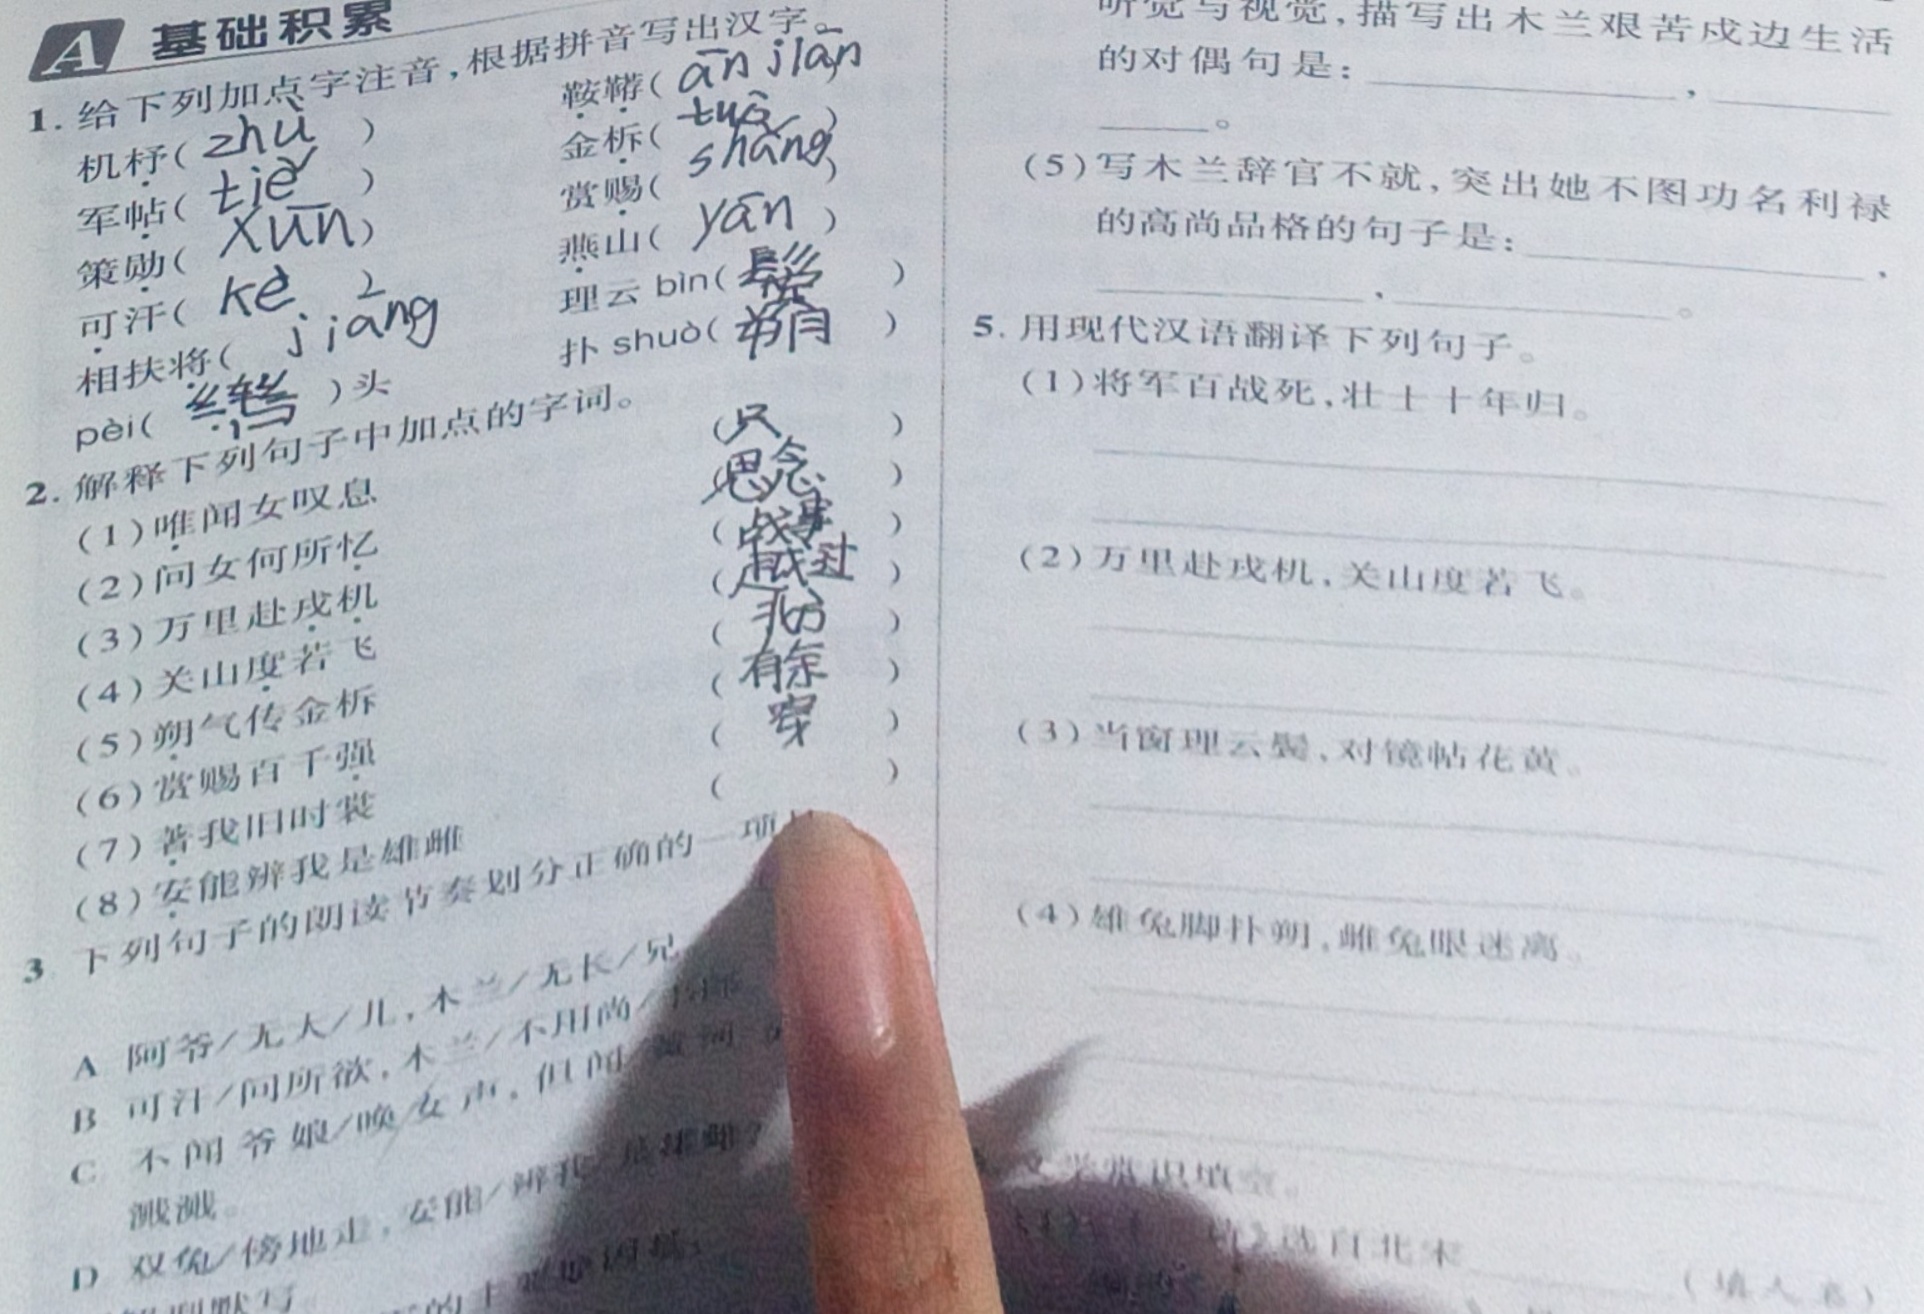 A 基础积累
1. 给下列加点字注音,根据拼音写出汉字。
机杼( zhù ) 鞍鞯( ān jiān )
军帖( tiě ) 金柝( tuò )
策勋( xūn ) 赏赐( shǎng )
可汗( kè ) 燕山( yān )
相扶将( jiāng 理云 bìn( 鬓 )
pèi( 辔 )头 扑 shuò( 朔 )
2. 解释下列句子中加点的字词。
(1)唯闻女叹息 (只 )
(2)问女何所忆 (思念 )
(3)万里赴戎机 ( 战事 )
(4)关山度若飞 ( 越过 )
(5)朔气传金柝 ( 北方 )
(6)赏赐百千强 ( 有余 )
(7)著我旧时裳 ( 穿 )
(8)安能辨我是雄雌 ( )
3 下列句子的朗读节奏划分正确的一项
A 阿爷/无大/儿,木兰/无长/兄
B 可汗/问所欲,木兰/不用尚/
C 不闻爷娘/唤女声,但闻
溅溅。
D 双兔/傍地走,安能/辨我 是雄雌?
听觉与视觉,描写出木兰艰苦戍边生活
的对偶句是: ,
。
(5)写木兰辞官不就,突出她不图功名利禄
的高尚品格的句子是: ,
, 。
5. 用现代汉语翻译下列句子。
(1)将军百战死,壮士十年归。
(2)万里赴戎机,关山度若飞。
(3)当窗理云鬓,对镜帖花黄。
(4)雄兔脚扑朔,雌兔眼迷离。
文学常识填空。
选自北宋
(填人名)